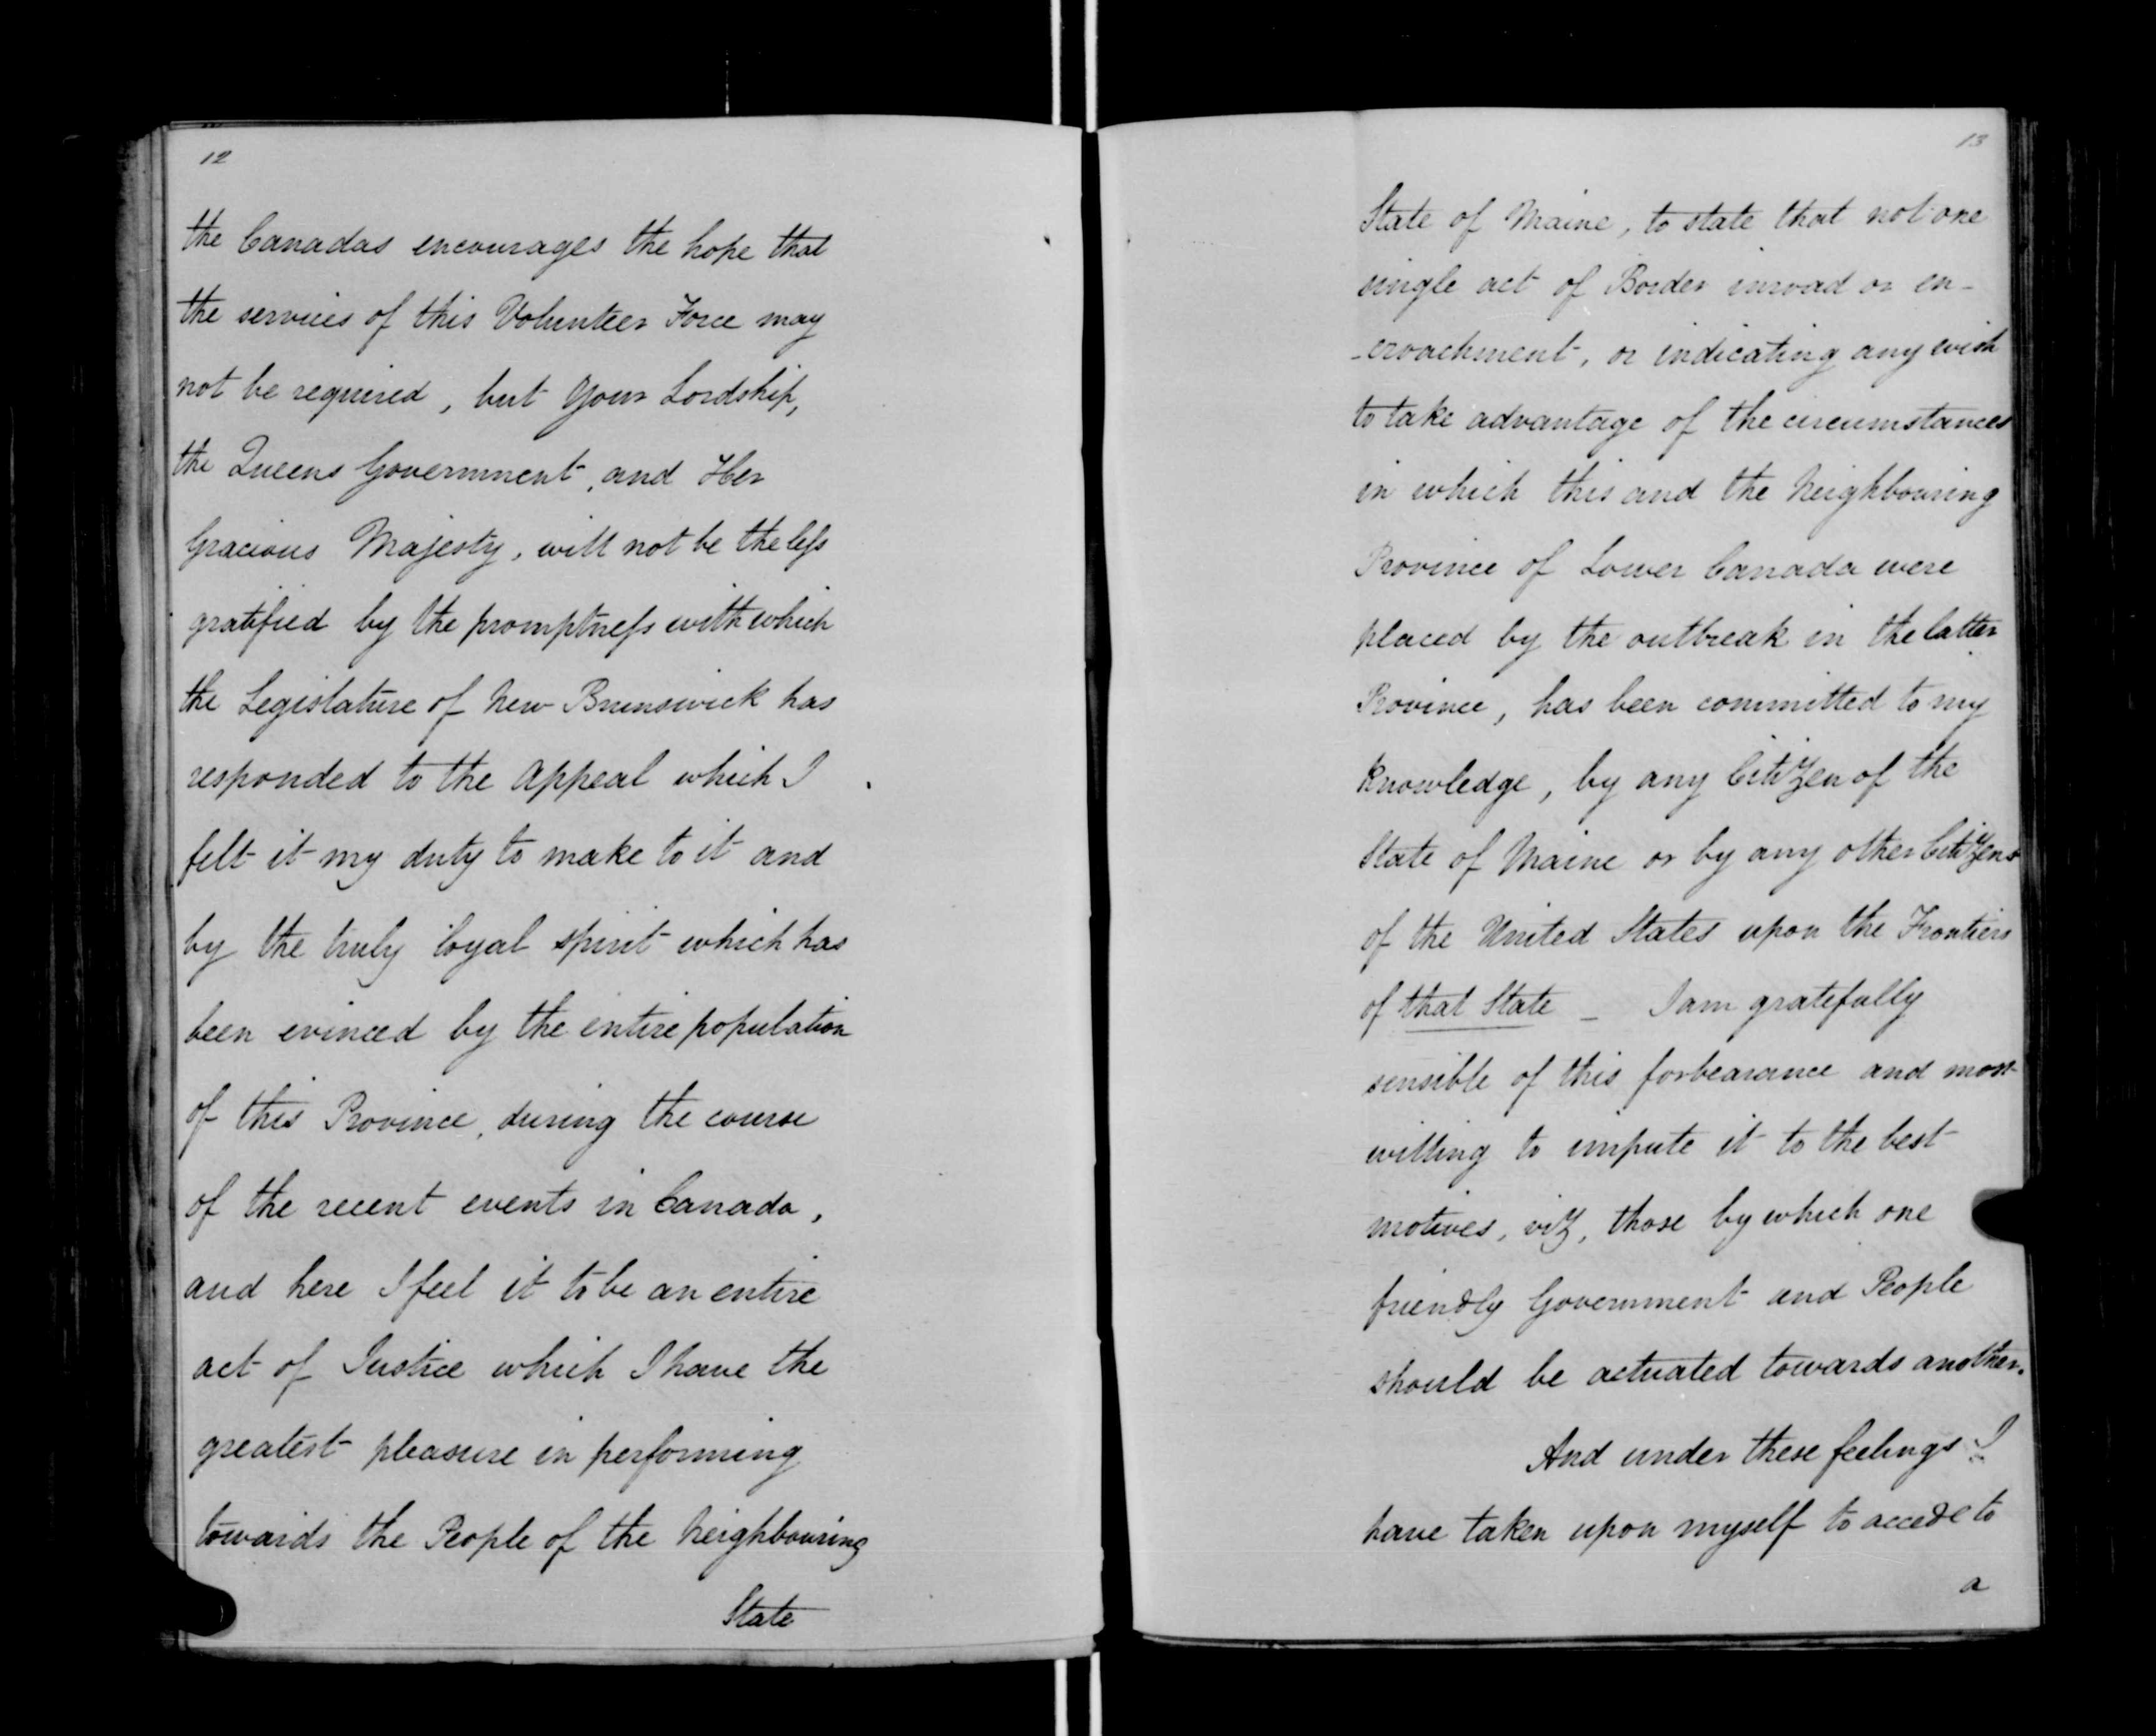 12
the Canadas encourages the hope that
the services of this Volunteer Force may
not be required, but Your Lordship,
the Queens Government, and Her
Gracious Majesty, will not be the less
gratified by the promptness with which
the Legislature of New Brunswick has
responded to the Appeal which I
felt it my duty to make to it and
by the truly loyal spirit which has
been evinced by the entire population
of this Province, during the course
of the recent events in Canada,
and here I feel it to be an entire
act of Justice which I have the
greatest pleasure in performing
towards the People of the Neighbouring
State
13
State of Maine, to state that not one
single act of Border inroad or en-
-croachment, or indicating any wish
to take advantage of the circumstances
in which this and the Neighbouring
Province of Lower Canada were
placed by the outbreak in the latter
Province, has been committed to my
knowledge, by any Citizen of the
State of Maine or by any other Citizens
of the United States upon the Frontiers
of that State _ I am gratefully
sensible of this forbearance and most
willing to impute it to the best
motives, viz, those by which one
friendly Government and People
should be actuated towards another.
And under these feelings I
have taken upon myself to accede to
a